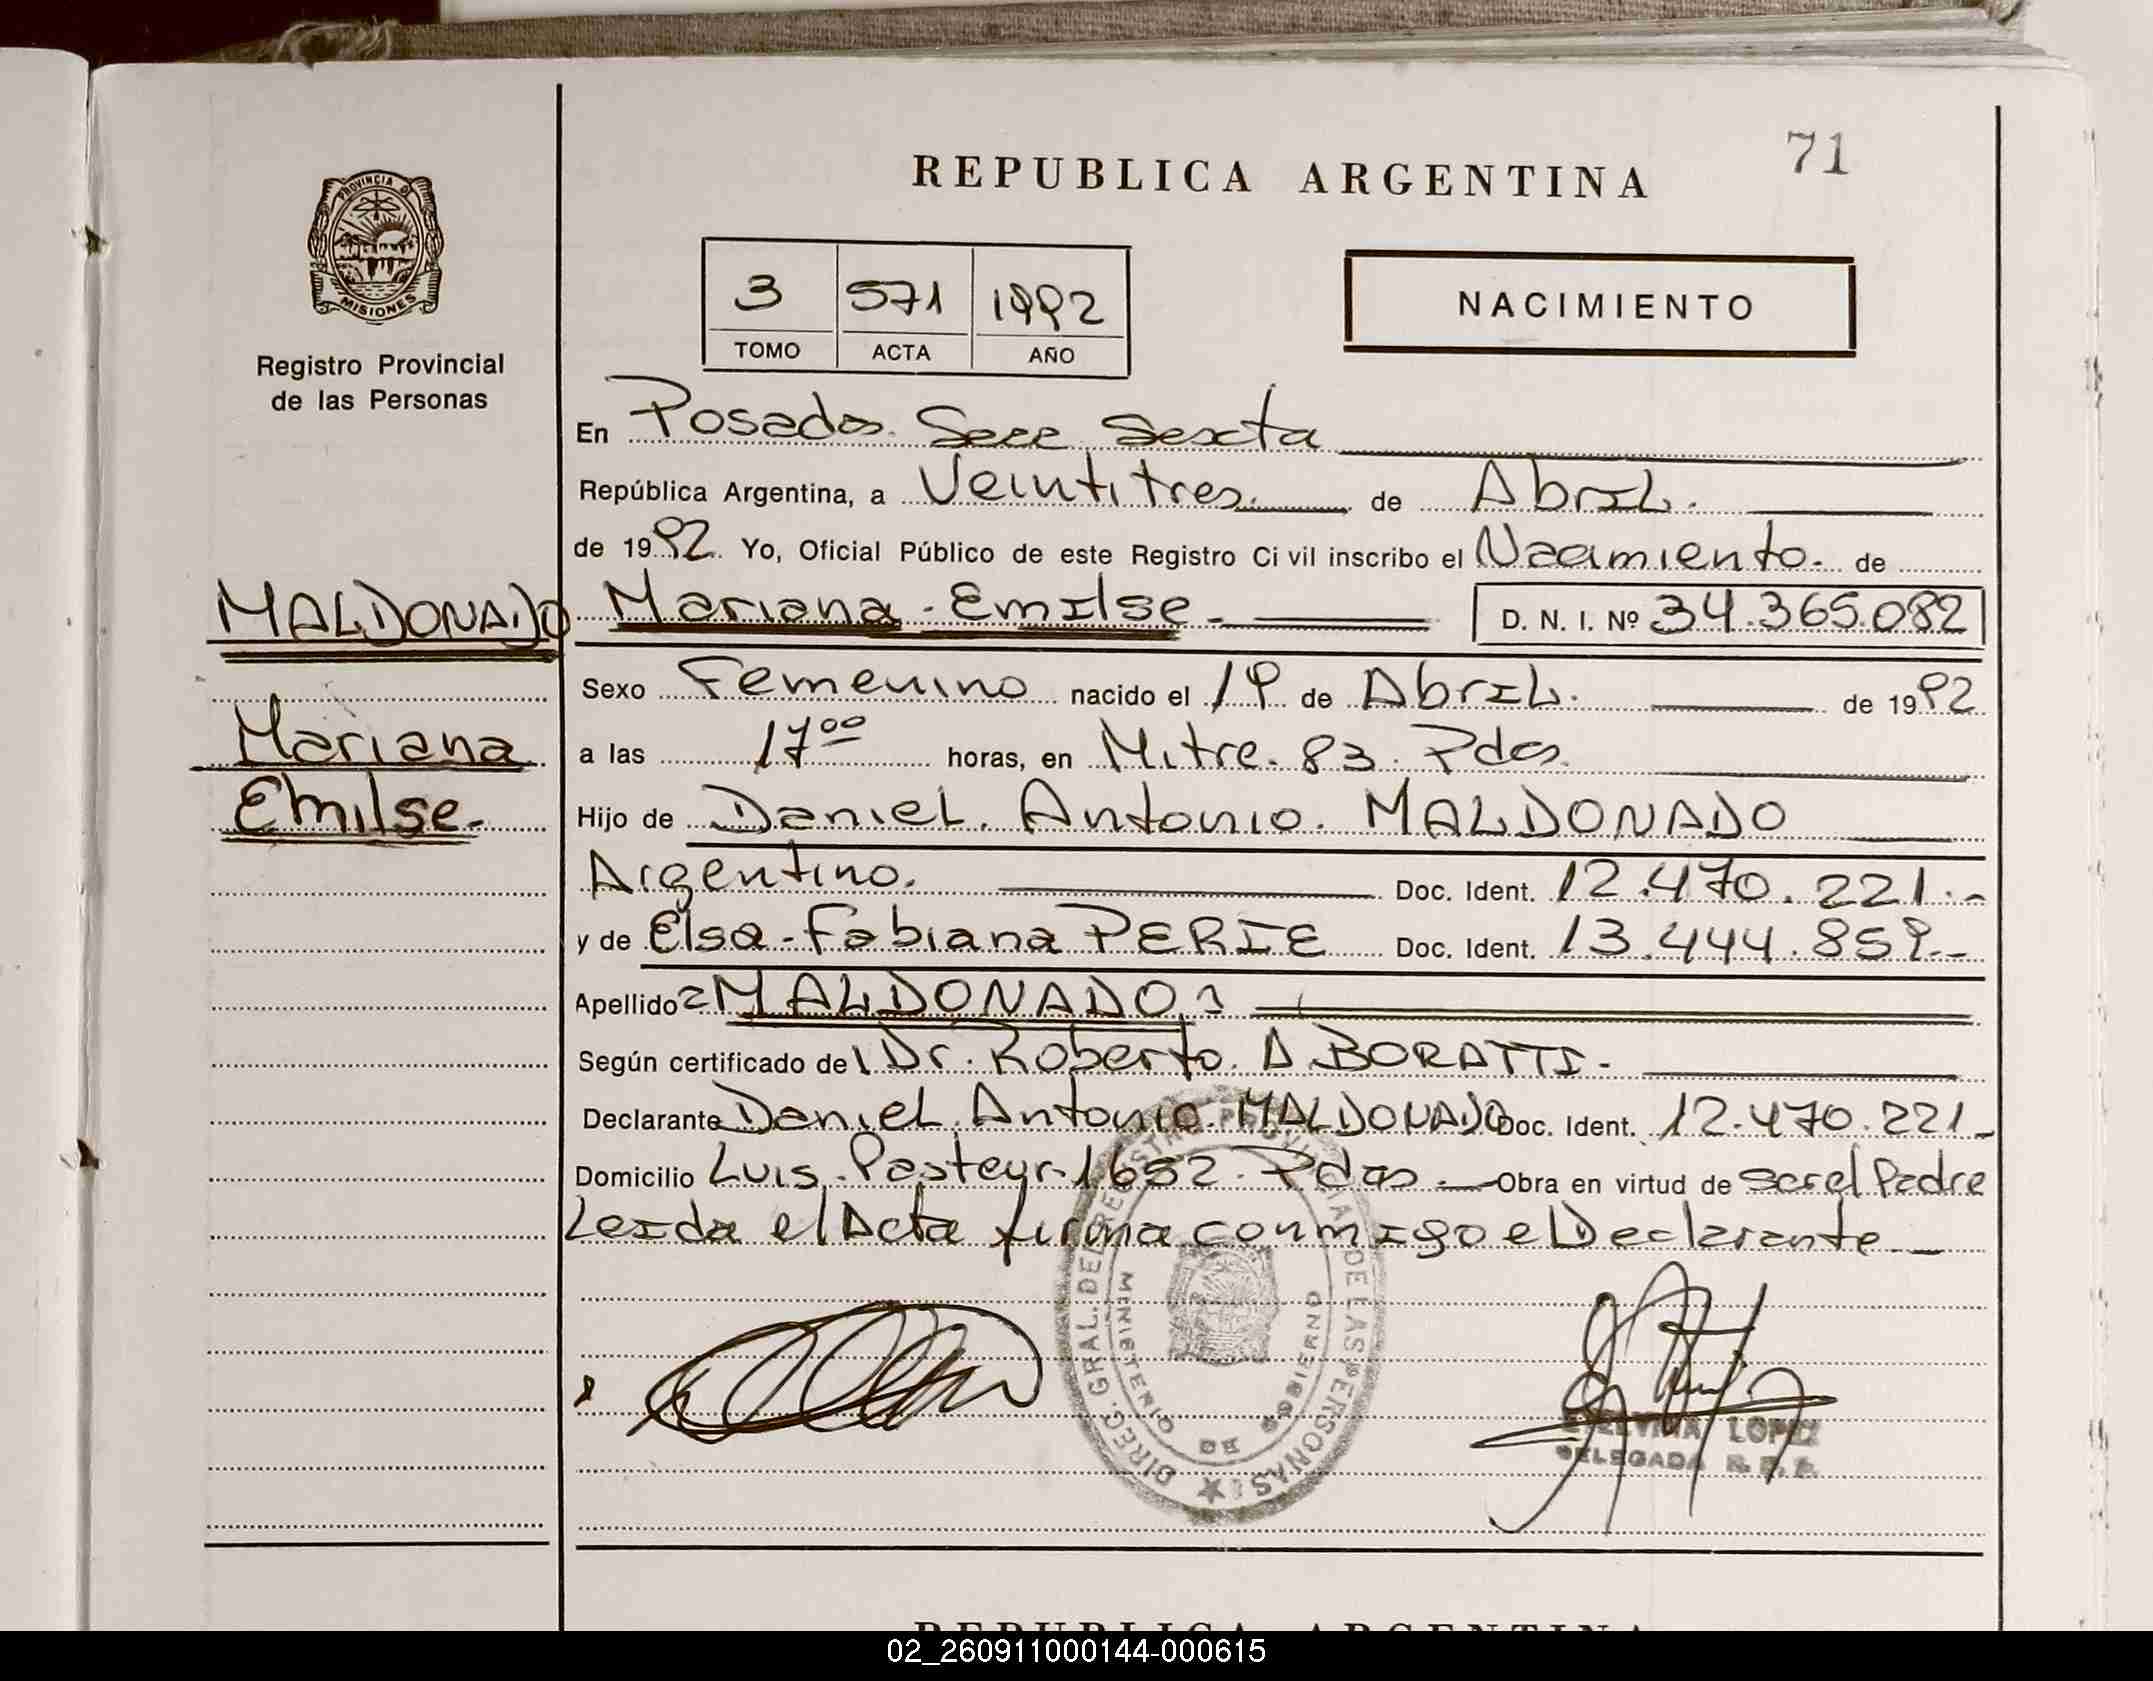 71
REPUBLICA ARGENTINA
PROVINCIA DE
MISIONES
Registro Provincial
de las Personas
3 571 1992
TOMO ACTA AÑO
NACIMIENTO
En Posadas. Secc Sexta
República Argentina, a Veintitres. de Abril.
de 1992. Yo, Oficial Público de este Registro Ci vil inscribo el Nacimiento. de
MALDONADO Mariana - Emilse - D. N. I. Nº 34.365.082
Sexo Femenino nacido el 19 de Abril. de 1992
Mariana a las 17⁰⁰ horas, en Mitre. 83. Pdas.
Emilse.- Hijo de Daniel. Antonio. MALDONADO
Argentino. Doc. Ident. 12.470.221.-
y de Elsa - Fabiana PERIE Doc. Ident. 13.444.859.-
Apellido MALDONADO
Según certificado del Dr. Roberto. A. BORATTI.-
Declarante Daniel. Antonio. MALDONADO Doc. Ident. 12.470.221-
Domicilio Luis. Pasteur. 1652. Pdas.- Obra en virtud de ser el Padre
Leida el Acta firma conmigo el Declarante-
DIREC. GRAL. DEL REGISTRO PROVINCIAL DE LAS PERSONAS
MINISTERIO DE GOBIERNO
LOPEZ
DELEGADA R. P. P.
REPUBLICA ARGENTINA
02_260911000144-000615